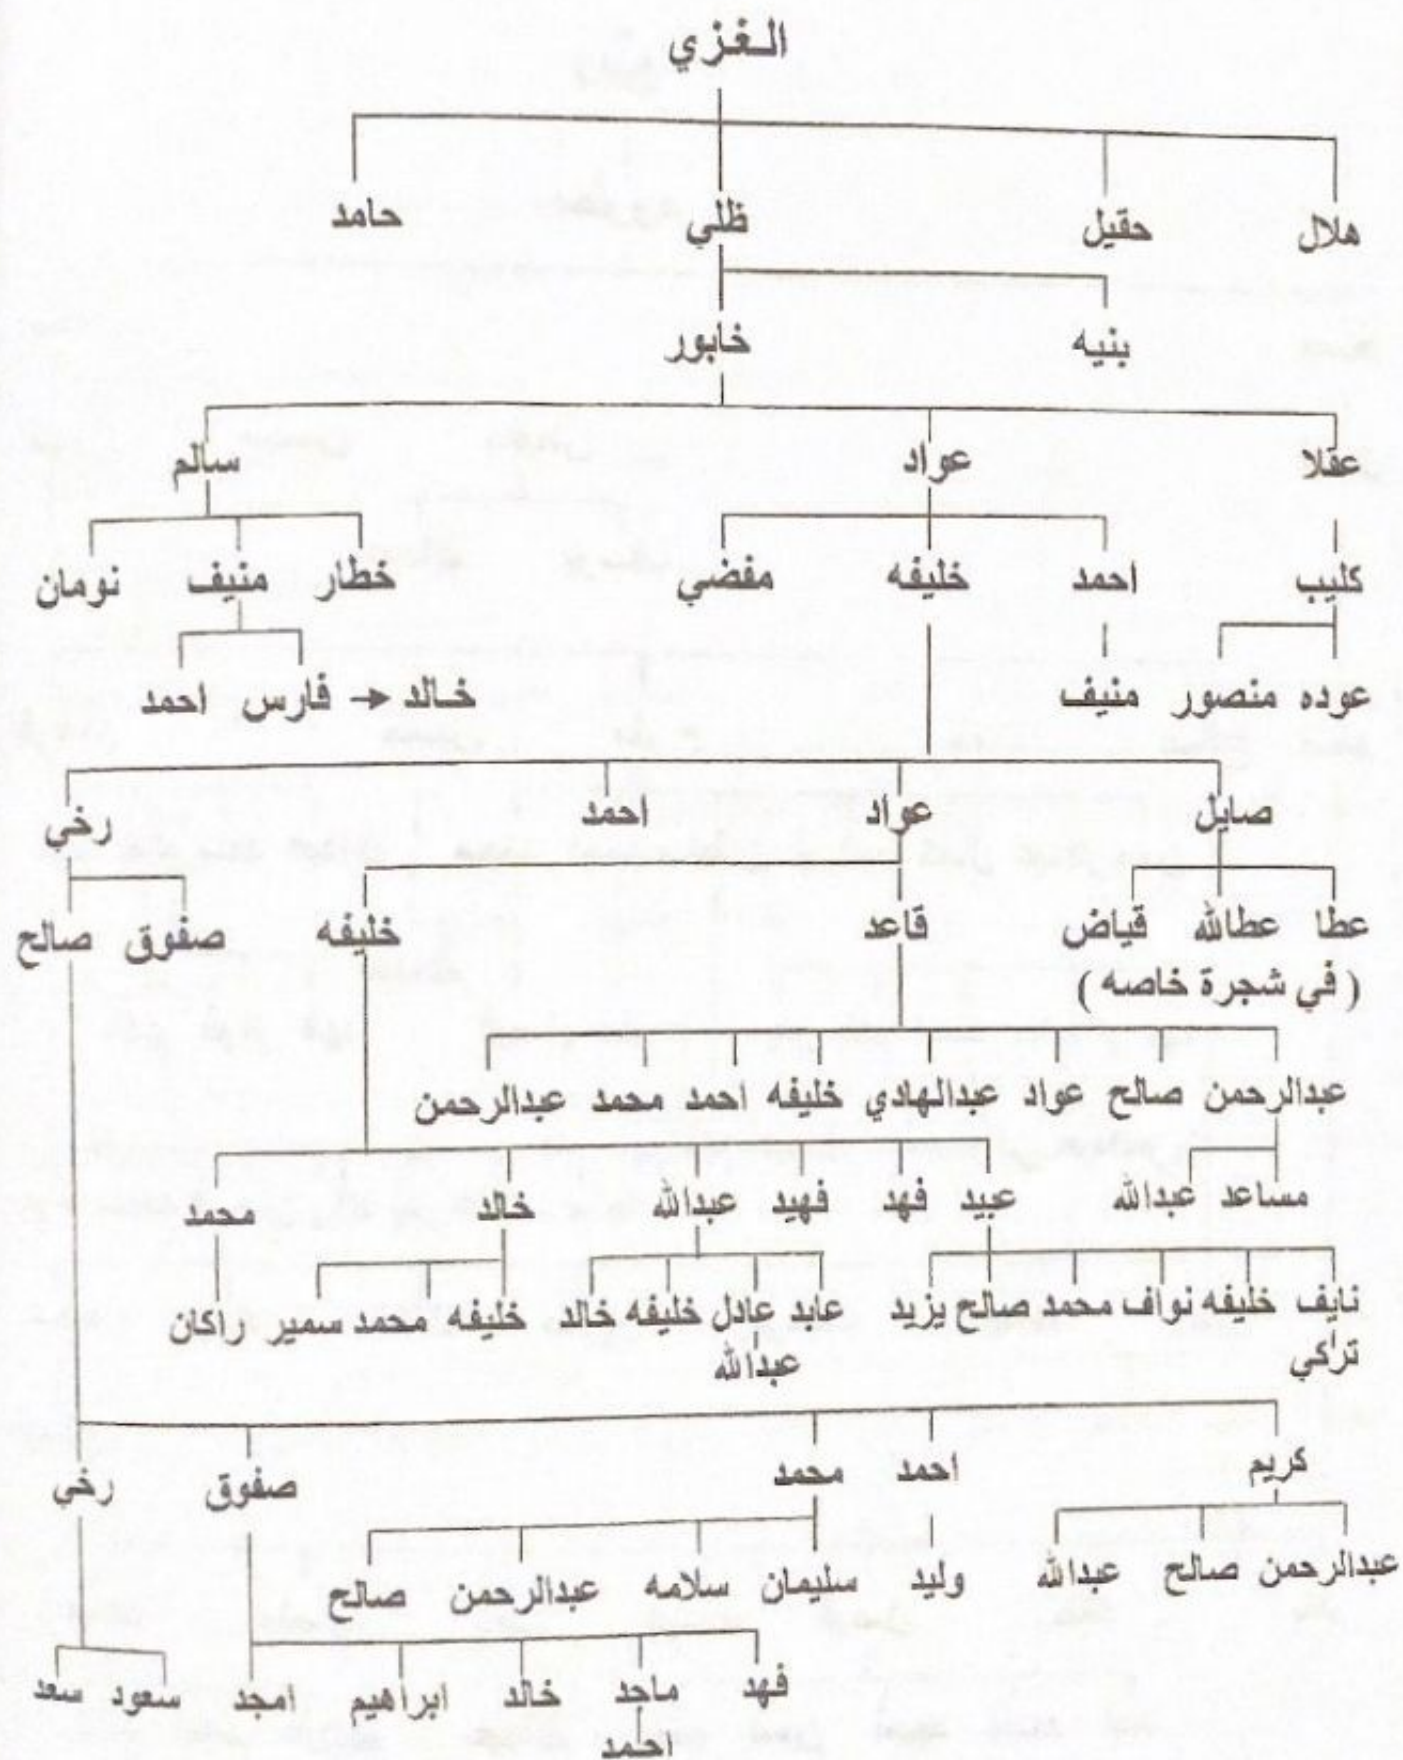 الغزي
هلال حقيل ظلي حامد
بنيه خابور
عقلا عواد سالم
كليب احمد خليفه مفضي خطار منيف نومان
عوده منصور منيف خالد → فارس احمد
صايل عواد احمد رخي
عطا عطاالله قياض قاعد خليفه صفوق صالح
( في شجرة خاصه )
عبدالرحمن صالح عواد عبدالهادي خليفه احمد محمد عبدالرحمن
مساعد عبدالله عبيد فهد فهيد عبدالله خالد محمد
نايف خليفه نواف محمد صالح يزيد عابد عادل خليفه خالد خليفه محمد سمير راكان
تركي عبدالله
كريم احمد محمد صفوق رخي
عبدالرحمن صالح عبدالله وليد سليمان سلامه عبدالرحمن صالح
فهد ماجد خالد ابراهيم امجد سعود سعد
احمد